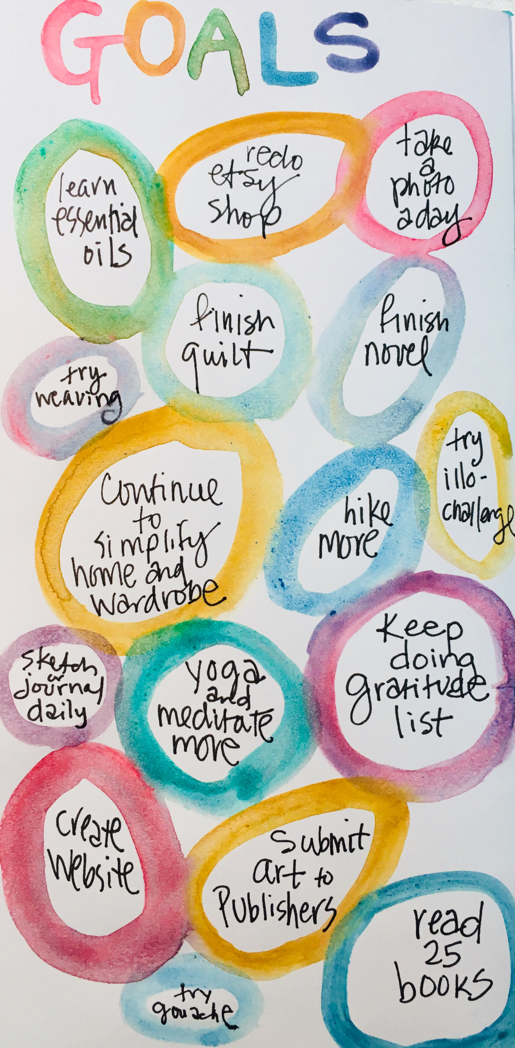 GOALS
learn
essential
oils
redo
etsy
shop
take
a
photo
a day
finish
quilt
finish
novel
try
weaving
try
illo-
challenge
Continue
to
simplify
home and
wardrobe
hike
more
sketch
or
journal
daily
yoga
and
meditate
more
Keep
doing
gratitude
list
create
website
Submit
art to
Publishers
read
25
books
try
gouache